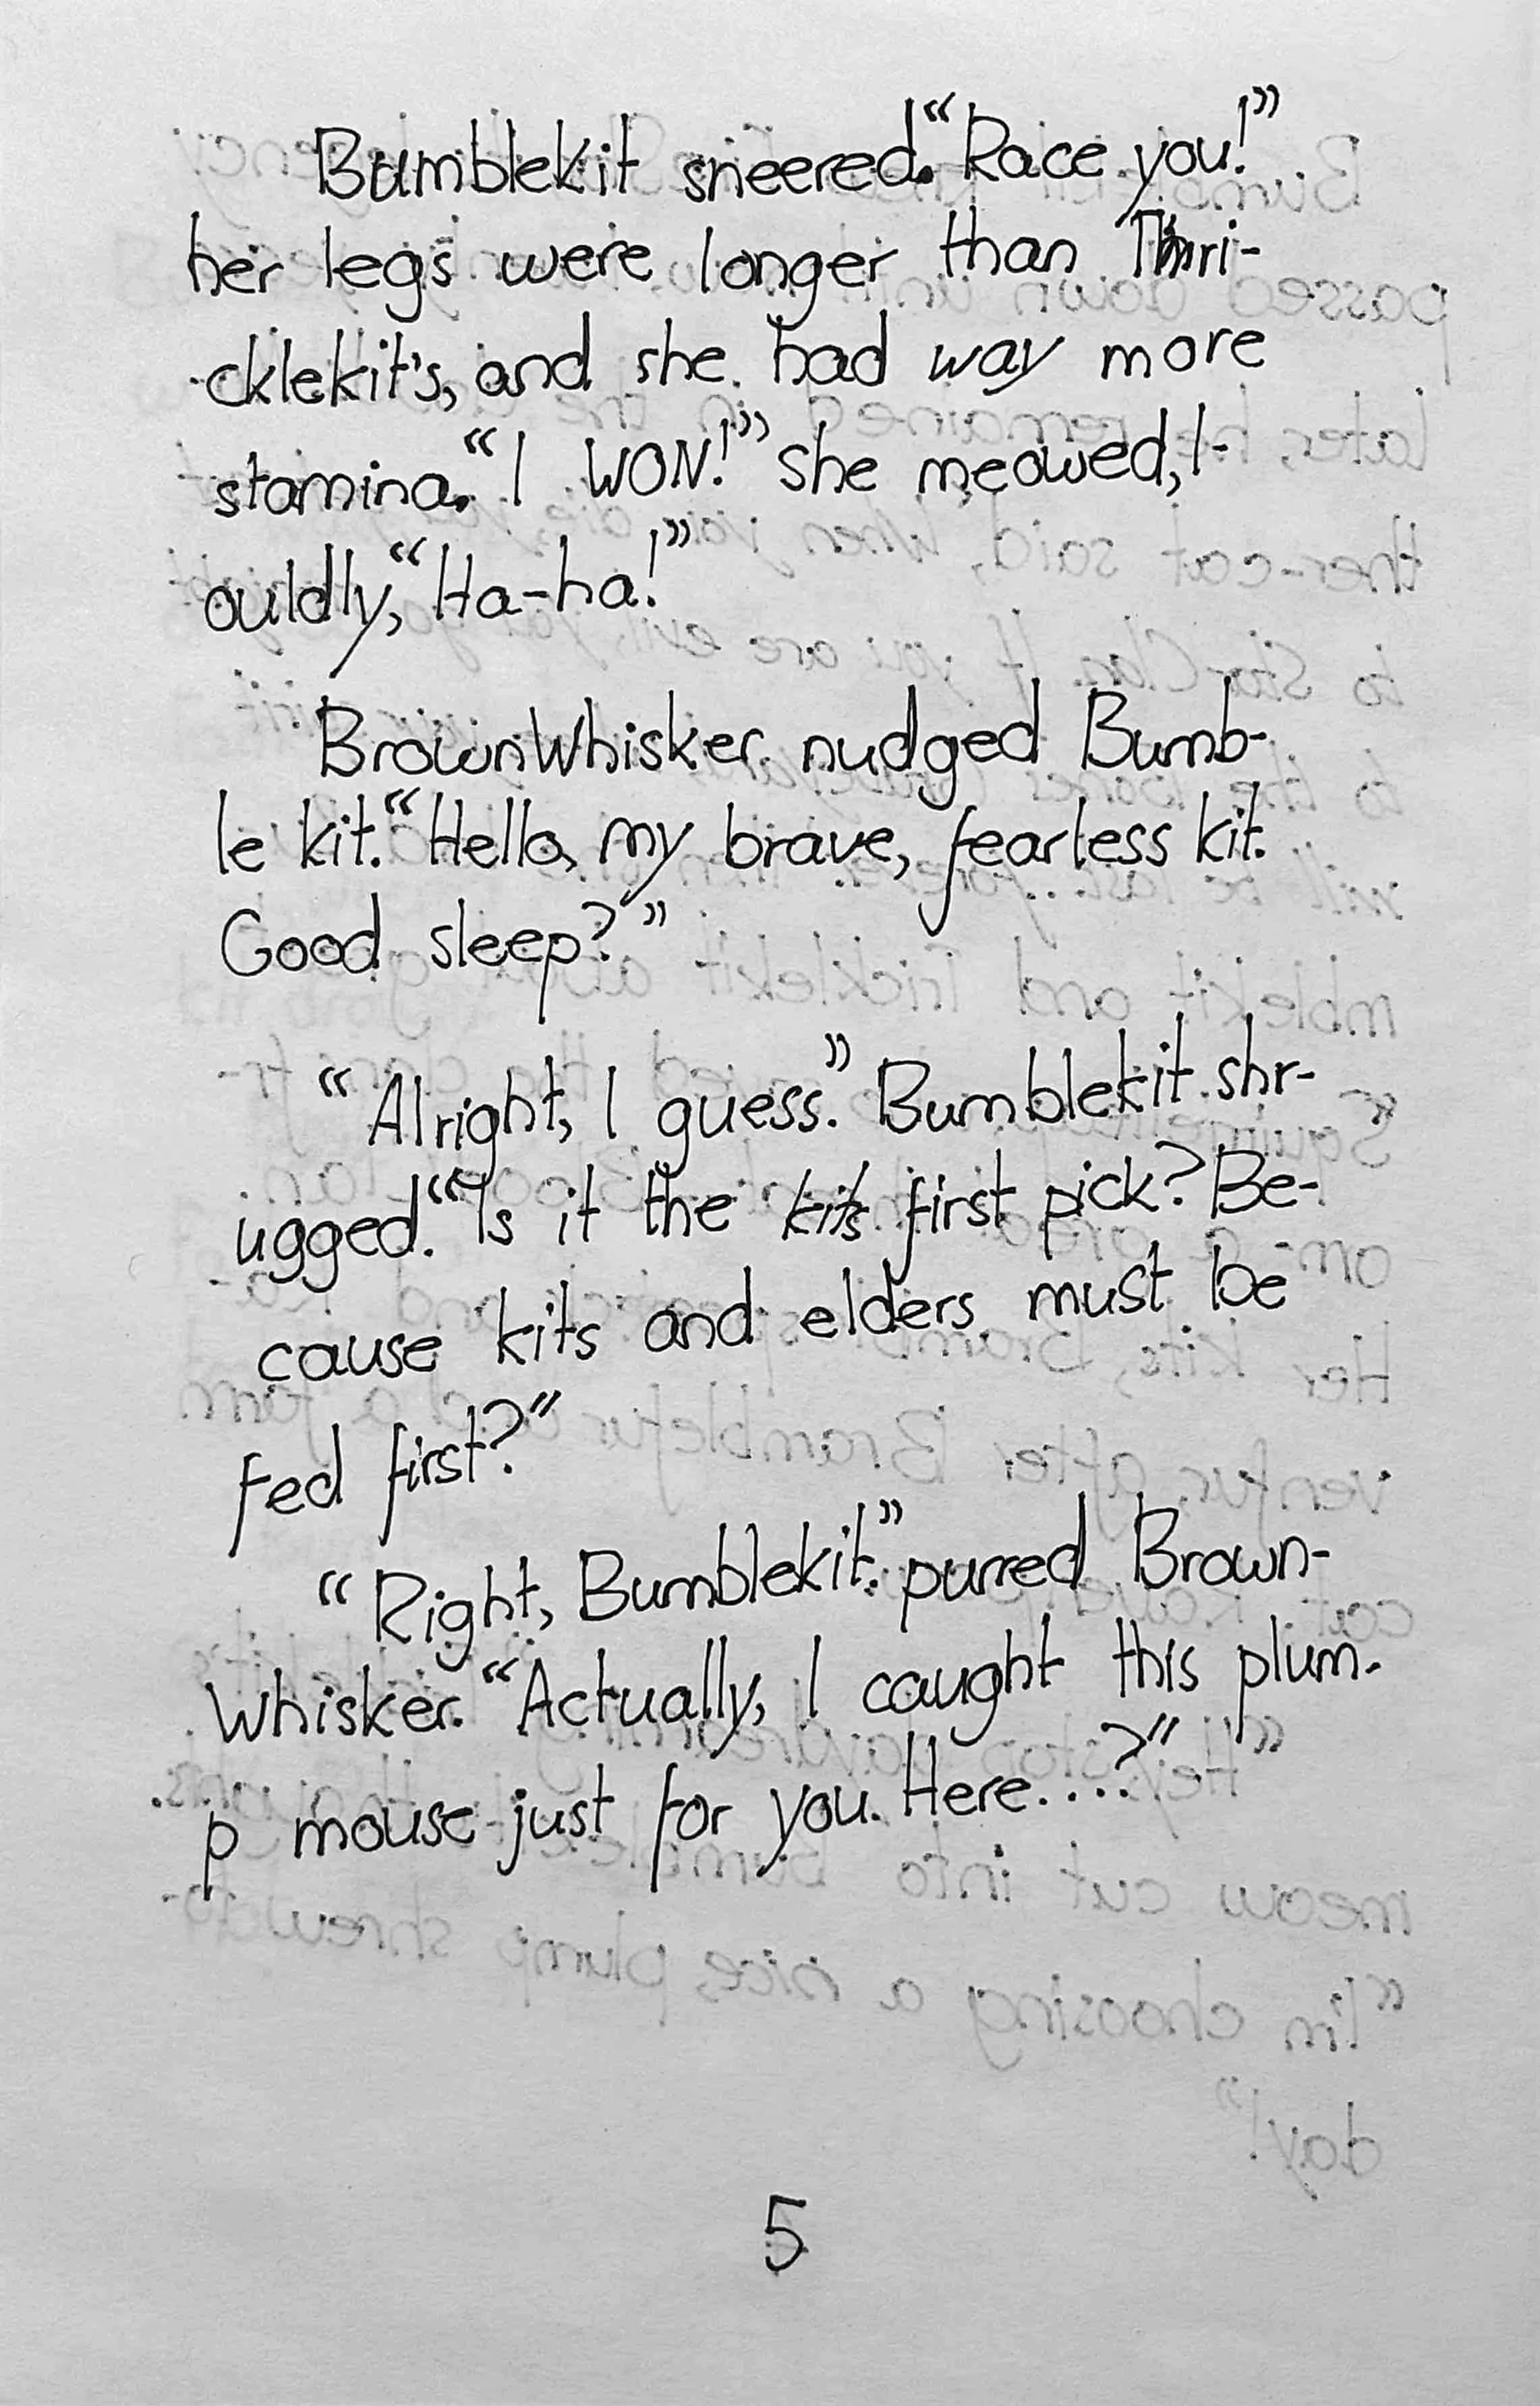 Bumblekit sneered. “Race you!”
her legs were longer than Thri-
cklekit's, and she had way more
stamina. “I WON!” she meowed, l-
ouldly, “Ha-ha!”
BrownWhisker nudged Bumb-
le kit. “Hello, my brave, fearless kit.
Good sleep?”
“Alright, I guess.” Bumblekit shr-
ugged. “Is it the kits first pick? Be-
cause kits and elders must be
fed first?”
“Right, Bumblekit.” purred Brown-
Whisker. “Actually, I caught this plum-
p mouse just for you. Here....?”
5